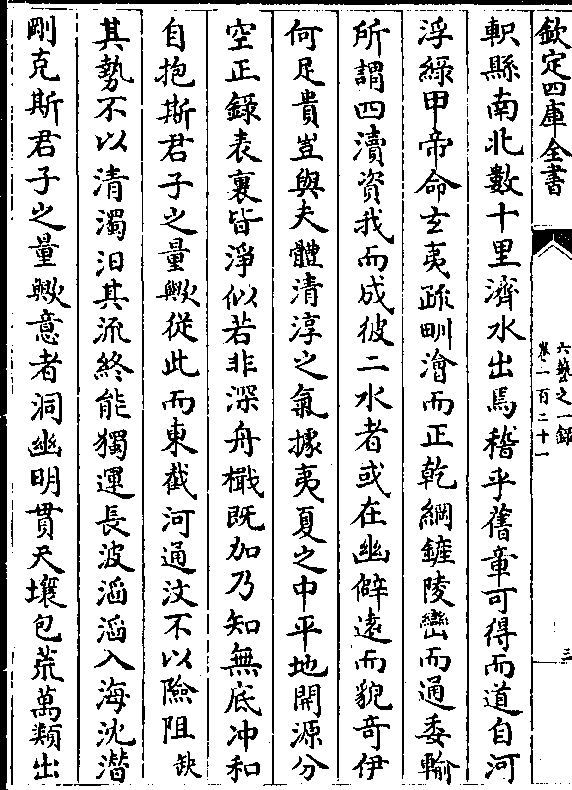 欽定四庫全書
六藝之一録
卷一百二十一
三
軹縣南北數十里濟水出焉稽乎舊章可得而道自河
浮綠甲帝命玄夷疏甽澮而正乾綱鏟陵巒而通委輸
所謂四瀆資我而成彼二水者或在幽僻遠而貌奇伊
何足貴豈與夫體清淳之氣據夷夏之中平地開源分
空正錄表裏皆淨似若非深舟檝既加乃知無底冲和
自抱斯君子之量歟從此而東截河通汶不以險阻缺
其勢不以清濁汩其流終能獨運長波滔滔入海沈潛
剛克斯君子之量歟意者洞幽明貫天壤包荒萬類出